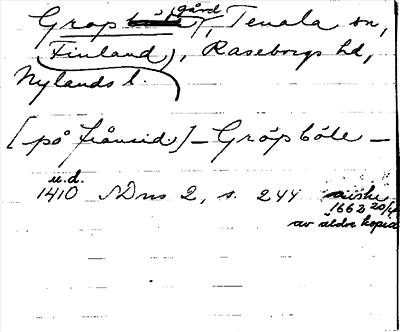 Gropgård, Tenala sn,
(Finland), Raseborgs hd,
Nylands l.
[på frånsid] – Gröpböle –
u.d.
1410 NDns 2, s. 244 avskr
1662 20/4
av äldre kopia